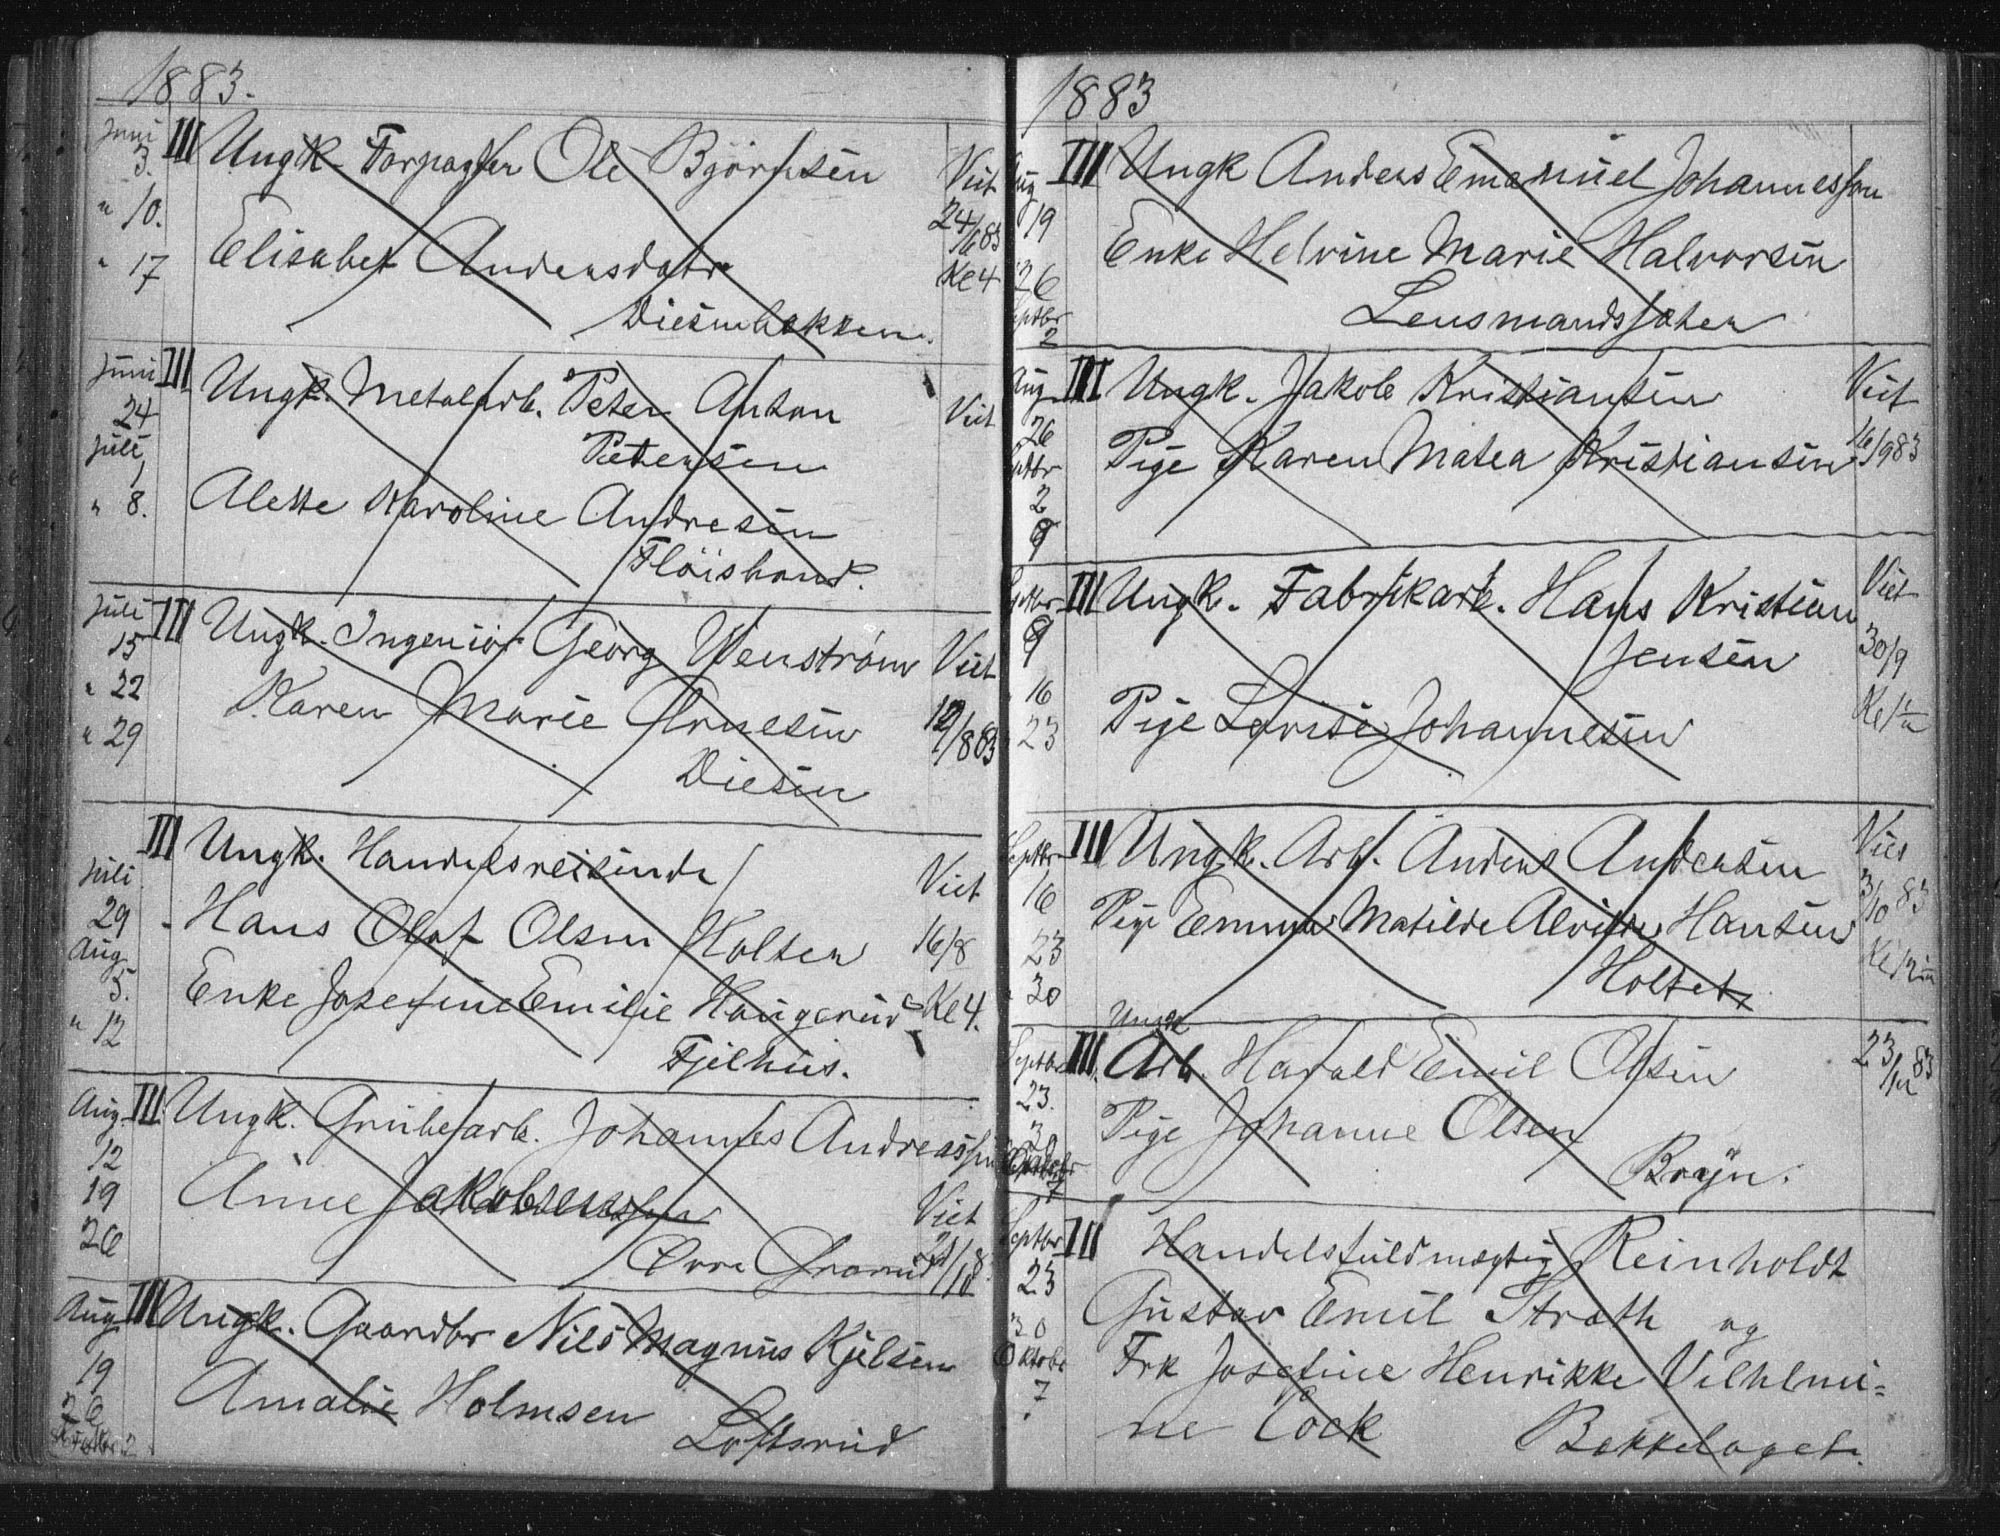 1883.
Juni 3. III Ungk. Forpagter Ole Björnsen Viet
" 10. 24/6 83
" 17 Elisabet Andersdatr Kl 4
Diesenbakken.
Juni III Ungk. Metalarb. Peter Anton Viet
24 Petersen
Juli 1
" 8. Alette Karoline Andresen
Flöisbond.
Juli III Ungk. Ingeniör Georg Wenström Viet
15
" 22 Karen Marie Arnesen 12/8 83
" 29 Diesen
III Ungk. Handelsreisende Viet
Juli
29 Hans Olaf Olsen Holter 16/8
Aug
5. Enke Josefine Emilie Haugerud Kl 4.
" 12 Fjelhus.
Aug. III Ungk. Grubearb. Johannes Andreassen
12
19 Anne Jakobsen Viet
26 Ovre
Aug III Ungk. Gaardbr Nils Magnus Kjelsen
19 Amalie Holmsen
26 Loftsrud
2
1883
Aug III Ungk Anders Emanuel Johannesson
19
Enke Helvine Marie Halvorsen
26
Septbr
2 Lensmandssæter
Aug III Ungk. Jakob Kristiansen Viet
26
Septbr Pige Karen Matea Kristiansen 16/9 83
2
9
Septbr III Ungk. Fabrikarb. Hans Kristian Viet
9 Jensen 30/9
16
23 Pige Lovise Johannesen
Septbr III Ungk. Arb. Anders Andersen Viet
16 3/10 83
23 Pige Emma Matilde Alvilde Hansen
30 Holtet
Ungk
Septbr III. Arb. Harald Emil Olsen 23/11 83
23.
30 Pige Johanne Olsen
Oktobr
7 Bryn.
Septbr III Handelsfuldmægtig Reinholdt
23 Gustav Emil Strøth og
30
Oktobr Frk Josefine Henrikke Vilhelmi=
7 ne Cock Bekkelaget.